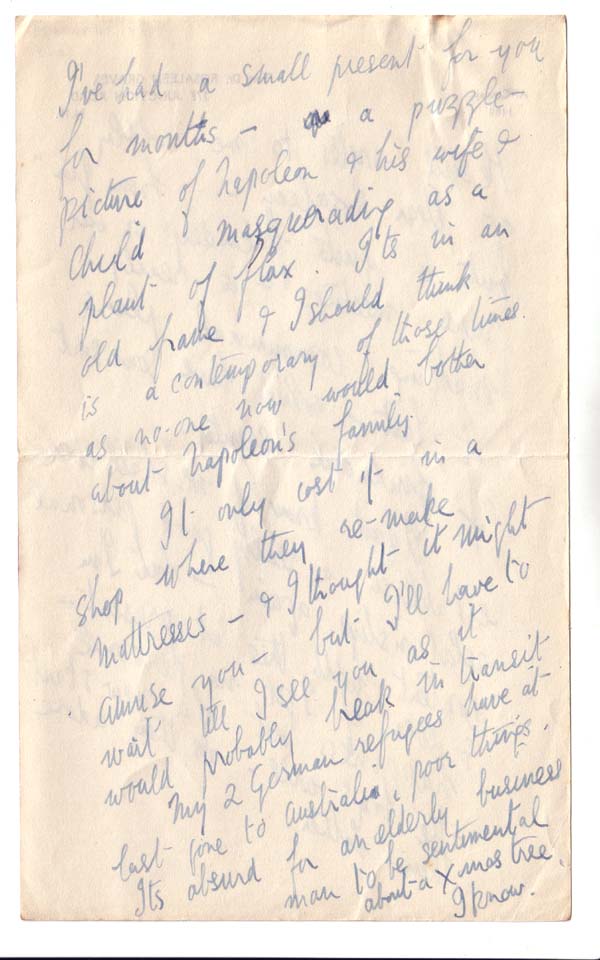 I've had a small present for you
for months - a puzzle-
picture of Napoleon & his wife &
child masquerading as a
plant of flax. Its in an
old frame & I should think
is a contemporary of those times.
as no-one now would bother
about Napoleon's family.
It only cost 1/- in a
shop where they re-make
mattresses - & I thought it might
amuse you - but I'll have to
wait till I see you as it
would probably break in transit
My 2 German refugees have at
last gone to Australia, poor things.
Its absurd for an elderly business
man to be sentimental
about a Xmas tree.
I know.